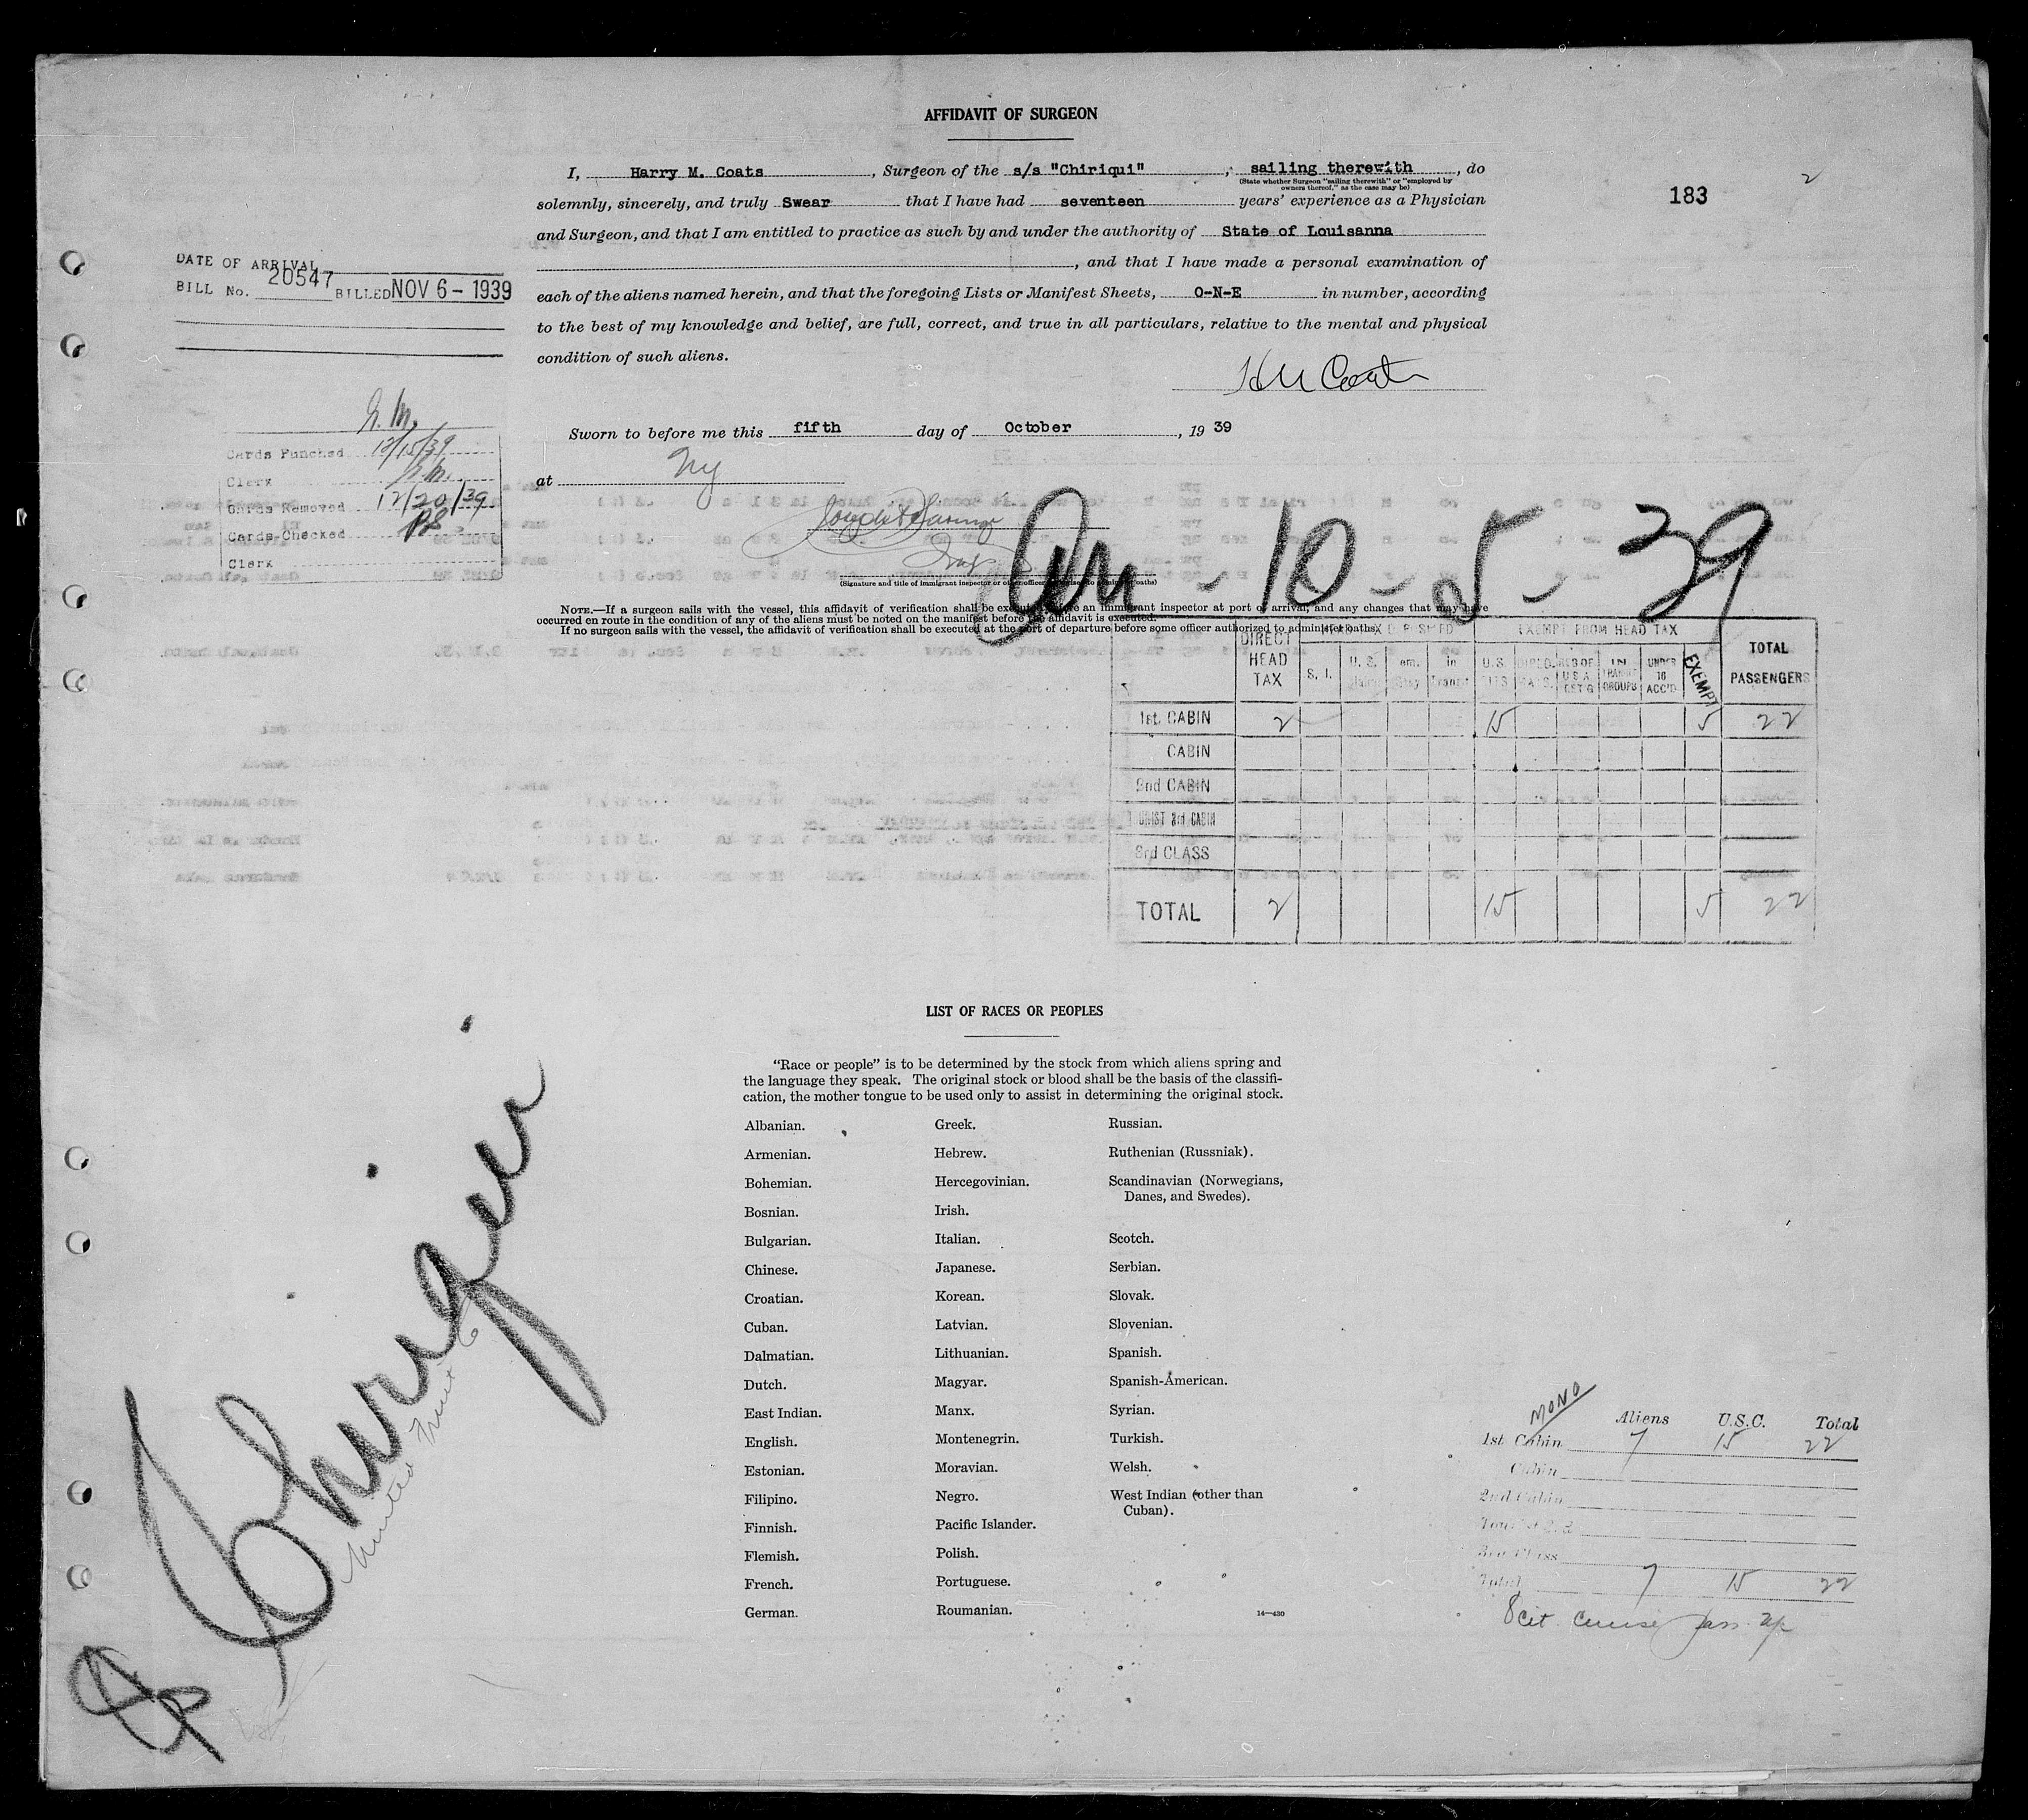 AFFIDAVIT OF SURGEON
I, Harry M. Coats, Surgeon of the s/s "Chiriqui", sailing therewith, do
(State whether Surgeon "sailing therewith" or "employed by
owners thereof," as the case may be)
183
2
solemnly, sincerely, and truly Swear that I have had seventeen years' experience as a Physician
and Surgeon, and that I am entitled to practice as such by and under the authority of State of Louisanna
, and that I have made a personal examination of
each of the aliens named herein, and that the foregoing Lists or Manifest Sheets, O-N-E in number, according
to the best of my knowledge and belief, are full, correct, and true in all particulars, relative to the mental and physical
condition of such aliens.
H M Coats
DATE OF ARRIVAL
BILL No. 20547 BILLED NOV 6 - 1939
Sworn to before me this fifth day of October, 19 39
at NY
Cards Punched 12/15/39
Clerk
Cards Removed 12/20/39
Cards Checked
Clerk
Arr - 10 - 5 - 39
(Signature and title of immigrant inspector or other officer authorized to administer oaths)
NOTE.—If a surgeon sails with the vessel, this affidavit of verification shall be executed before an immigrant inspector at port of arrival, and any changes that may have
occurred en route in the condition of any of the aliens must be noted on the manifest before the affidavit is executed.
If no surgeon sails with the vessel, the affidavit of verification shall be executed at the port of departure before some officer authorized to administer oaths.
DIRECT HEAD TAX S. I. U. S. in Transit EXEMPT FROM HEAD TAX U.S. UNDER 16 ACC'D EXEMPT TOTAL PASSENGERS
1st. CABIN 2 15 5 22
CABIN
2nd CABIN
TOURIST 3rd CABIN
3rd CLASS
TOTAL 2 15 5 22
LIST OF RACES OR PEOPLES
"Race or people" is to be determined by the stock from which aliens spring and
the language they speak. The original stock or blood shall be the basis of the classifi-
cation, the mother tongue to be used only to assist in determining the original stock.
Albanian.
Armenian.
Bohemian.
Bosnian.
Bulgarian.
Chinese.
Croatian.
Cuban.
Dalmatian.
Dutch.
East Indian.
English.
Estonian.
Filipino.
Finnish.
Flemish.
French.
German.
Greek.
Hebrew.
Hercegovinian.
Irish.
Italian.
Japanese.
Korean.
Latvian.
Lithuanian.
Magyar.
Manx.
Montenegrin.
Moravian.
Negro.
Pacific Islander.
Polish.
Portuguese.
Roumanian.
Russian.
Ruthenian (Russniak).
Scandinavian (Norwegians,
Danes, and Swedes).
Scotch.
Serbian.
Slovak.
Slovenian.
Spanish.
Spanish-American.
Syrian.
Turkish.
Welsh.
West Indian (other than
Cuban).
14—430
Chiriqui
United Fruit Co
MONO
Aliens U.S.C. Total
1st Cabin 7 15 22
Cabin
2nd Cabin
3rd Class
Total 7 15 22
8 cit cruise pass